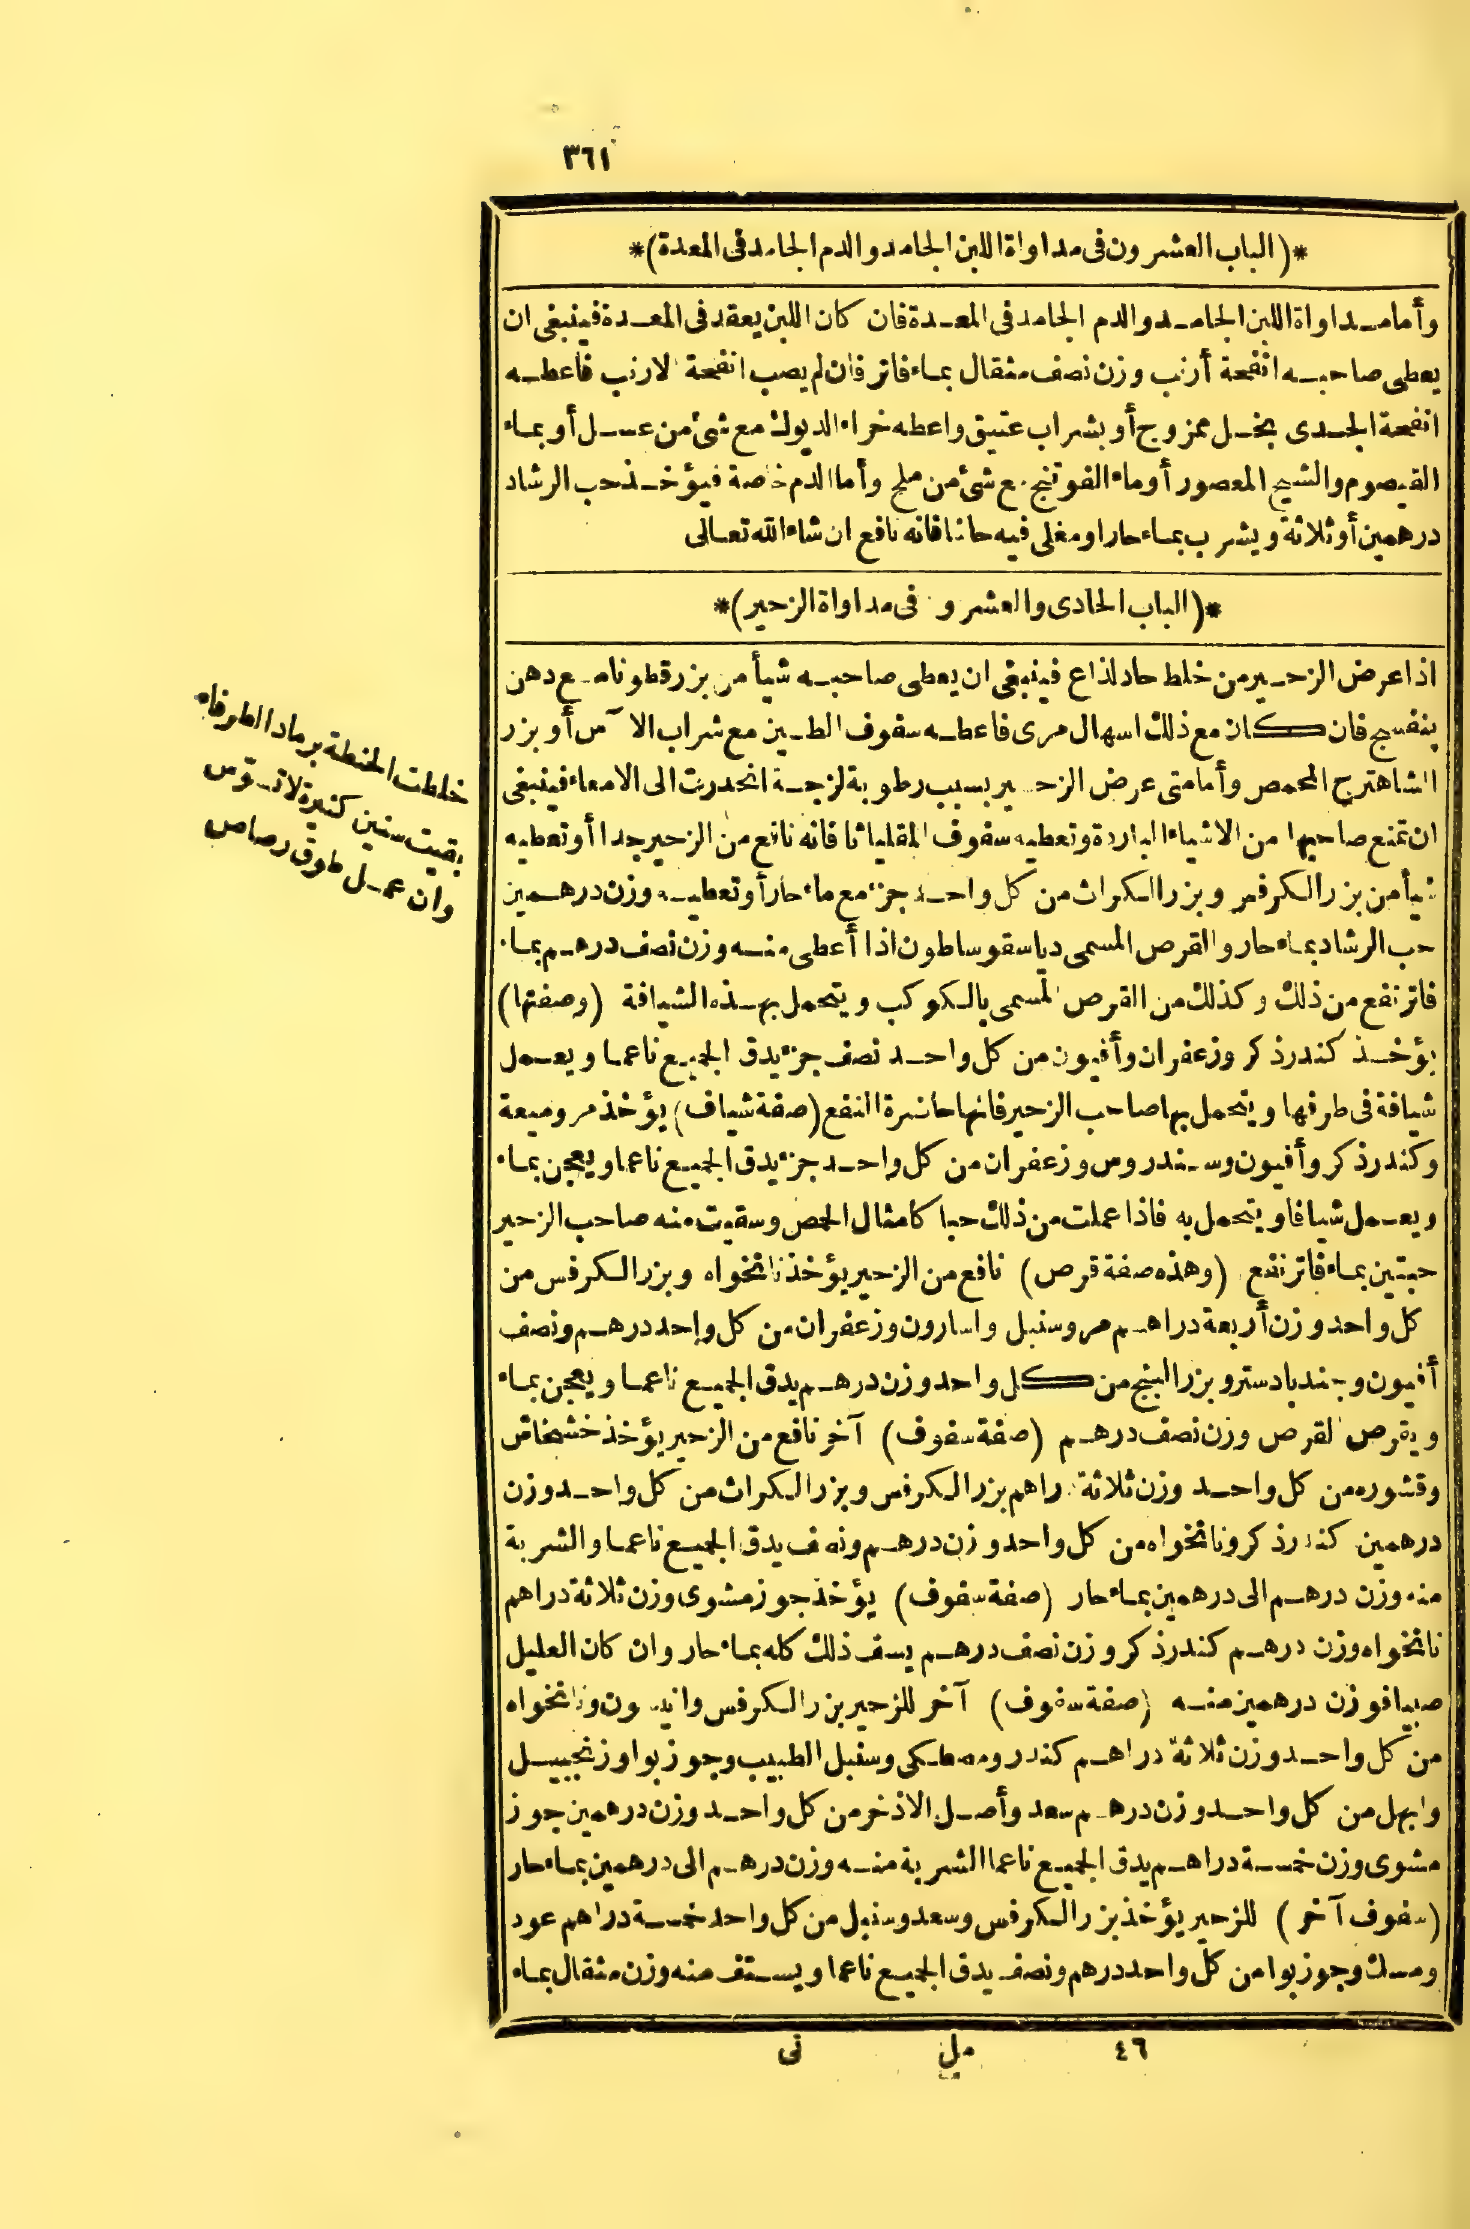 ٣٦١
*(الباب العشرون فى مداواة اللبن الجامد والدم الجامد فى المعدة)*
وأما مداواة اللبن الجامد والدم الجامد فى المعدة فان كان اللبن يعقد فى المعدة فينبغى ان
يعطى صاحبه انفحة أرنب وزن نصف مثقال بماء فاتر فان لم يصب انفحة الارنب فاعطه
انفحة الجدى بخل ممزوج أو بشراب عتيق واعطه خراء الديوك مع شئ من عسل أو بماء
القيصوم والشيح المعصور أو ماء الفوتنج مع شئ من ملح وأما الدم خاصة فيؤخذ حب الرشاد
درهمين أو ثلاثة ويشرب بماء حار او مغلى فيه حاشا فانه نافع ان شاء الله تعالى
*(الباب الحادى والعشرون فى مداواة الزحير)*
اذا عرض الزحير من خلط حاد لذاع فينبغى ان يعطى صاحبه شيأ من بزر قطونا مع دهن
بنفسج فان كان مع ذلك اسهال مرى فاعطه سفوف الطين مع شراب الآس أو بزر
الشاهترج المحمص وأما متى عرض الزحير بسبب رطوبة لزجة انحدرت الى الامعاء فينبغى
ان تمنع صاحبها من الاشياء الباردة وتعطيه سفوف المقلياثا فانه نافع من الزحير جدا أو تعطيه
شيأ من بزر الكرفس وبزر الكراث من كل واحد جزء مع ماء حار أو تعطيه وزن درهمين
حب الرشاد بماء حار والقرص المسمى دياسقوساطون اذا أعطى منه وزن نصف درهم بماء
فاتر نفع من ذلك وكذلك من القرص المسمى بالكوكب ويتحمل بهذه الشيافة (وصفتها)
يؤخذ كندر ذكر وزعفران وأفيون من كل واحد نصف جزء يدق الجميع ناعما ويعمل
شيافة فى طرفها ويتحمل بها صاحب الزحير فانها حاضرة النفع (صفة شياف) يؤخذ مر وميعة
وكندر ذكر وأفيون وسندروس وزعفران من كل واحد جزء يدق الجميع ناعما ويعجن بماء
ويعمل شيافا ويتحمل به فاذا عملت من ذلك حبا كامثال الحمص وسقيت منه صاحب الزحير
حبتين بماء فاتر نفع (وهذه صفة قرص) نافع من الزحير يؤخذ نانخواه وبزر الكرفس من
كل واحد وزن أربعة دراهم مر وسنبل واسارون وزعفران من كل واحد درهم ونصف
أفيون وجندبادستر وبزر البنج من كل واحد وزن درهم يدق الجميع ناعما ويعجن بماء
ويقرص القرص وزن نصف درهم (صفة سفوف) آخر نافع من الزحير يؤخذ خشخاش
وقشوره من كل واحد وزن ثلاثة دراهم بزر الكرفس وبزر الكراث من كل واحد وزن
درهمين كندر ذكر ونانخواه من كل واحد وزن درهم ونصف يدق الجميع ناعما والشربة
منه وزن درهم الى درهمين بماء حار (صفة سفوف) يؤخذ جوز مشوى وزن ثلاثة دراهم
نانخواه وزن درهم كندر ذكر وزن نصف درهم يسف ذلك كله بماء حار وان كان العليل
صبيا فوزن درهمين منه (صفة سفوف) آخر للزحير بزر الكرفس وانيسون ونانخواه
من كل واحد وزن ثلاثة دراهم كندر ومصطكى وسنبل الطيب وجوزبوا وزنجبيل
وابهل من كل واحد وزن درهم سعد وأصل الاذخر من كل واحد وزن درهمين جوز
مشوى وزن خمسة دراهم يدق الجميع ناعما الشربة منه وزن درهم الى درهمين بماء حار
(سفوف آخر) للزحير يؤخذ بزر الكرفس وسعد وسنبل من كل واحد خمسة دراهم عود
ومسك وجوزبوا من كل واحد درهم ونصف يدق الجميع ناعما ويستف منه وزن مثقال بماء
٤٦ مل نى
خلطت الحنطة برماد الطرفاء
بقيت سنين كثيرة لا تسوّس
وان عمل طوق رصاص